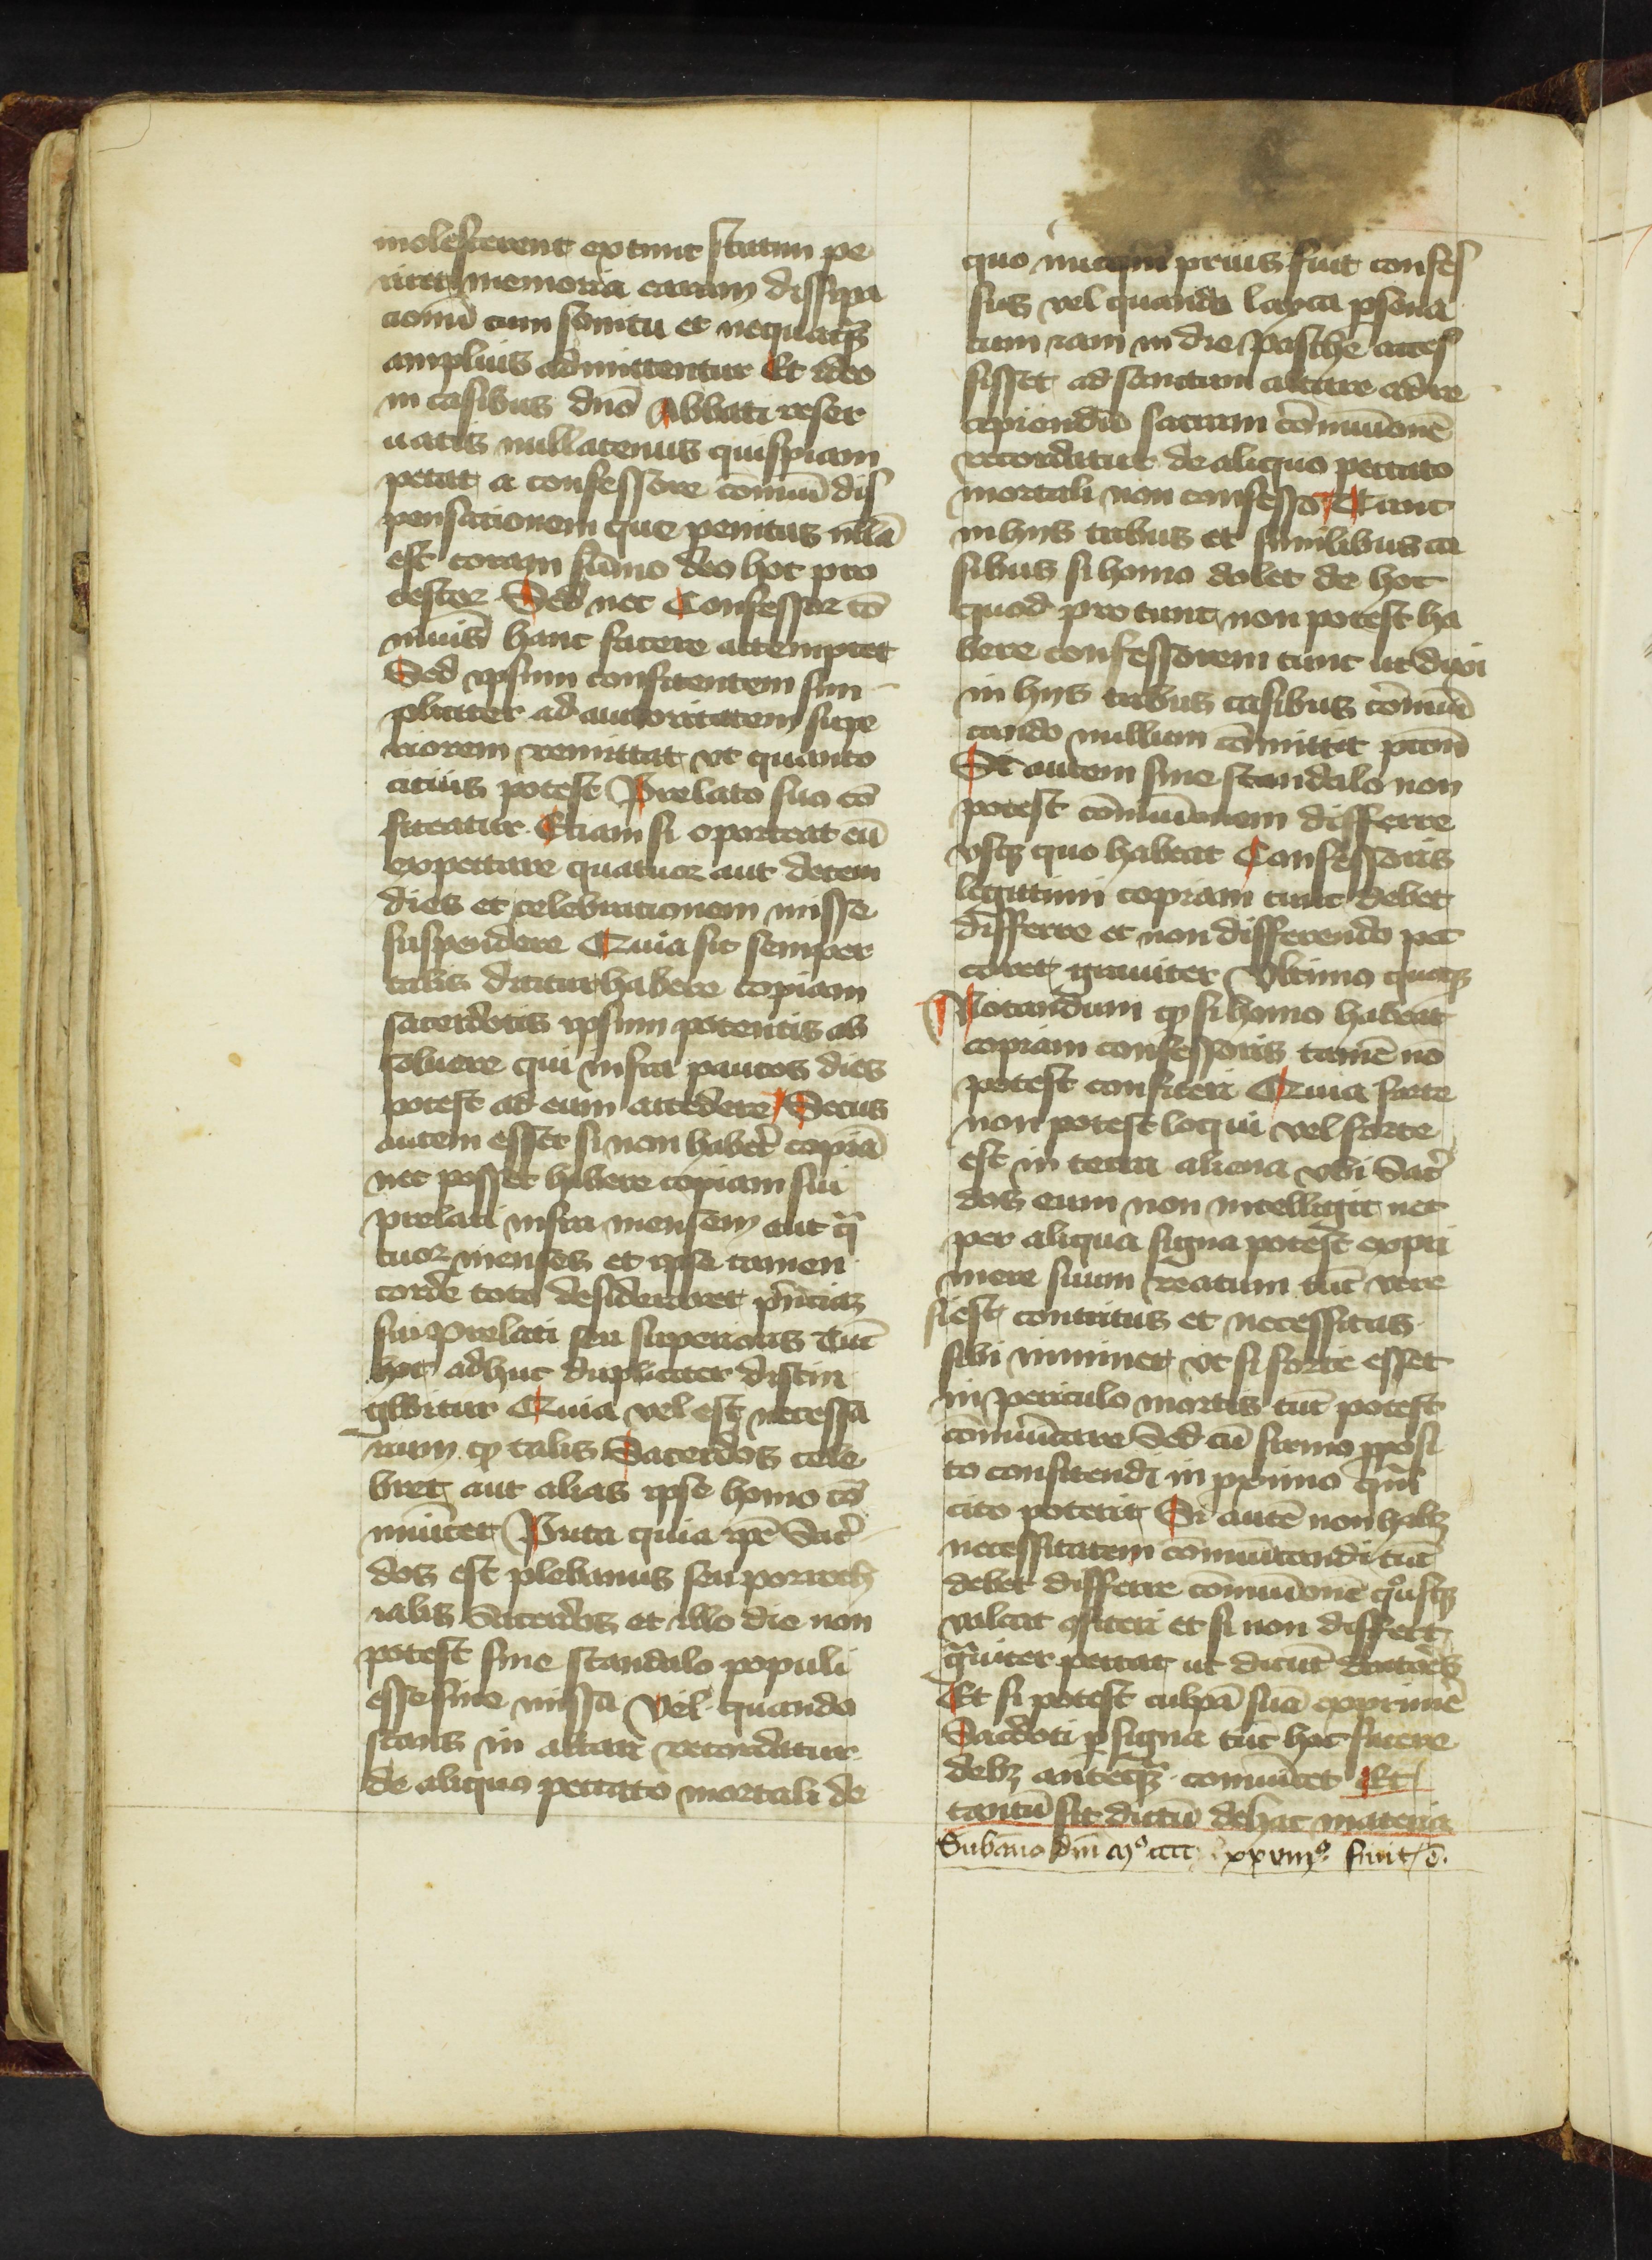 molesterent ex tunc statim pe
riret memoria earum dissipa
cionū cum sonitu et nequaqꝫ
amplius admittentur Et ideo
in casibus dnō Abbati reser
uatis nullatenus quispiam
petat a confessore comūi dis
pensationem que penitus nllā
est coram sūmo deo hoc pro
testor Sed nec Confessor cō
munis hanc facere attemptet
Sed ipsum confitentem sim
pliciter ad autoritatem supe
riorem remittat vt quanto
cicius potest Prelato suo cō
fiteatur Etiam si oporteat eū
expectare quatuor aut decem
dies et celebracionem misse
suspendere Quia sit semper
talis dicitur habere copiam
sacerdotis ipsum potentis ab
soluere qui infra paucos dies
potest ad eum accedere Secus
autem esset si non haberꝫ copiā
nec posset habere copiam sui
prelati infra mensem aut q̄
tuor menses et ipse tamen
corde toto desideraret pn̄ciaꝫ
sui Prelati seu superioris Tūc
hoc adhuc dupliciter distin
gwitur Quia vel est necessa
rium ꝙ talis Sacerdos cele
bret aut alias ipse homo cō
mūicet Puta quia ip̄e Sacꝰ
dos est plebanus seu parroch
ialis Sacerdos et illo die non
potest sine scandalo populi
esse sine missa Vel quando
stans in altari recordatur
de aliquo peccato mortali de
quo prius fuit confes
sus vel quando layca psona
cum iam in die pasche acces
sisset ad sanctum altare ad re
cipiendū sacram cōmūionē
recordatur de aliquo peccato
mortali non confesso Tunc
in hijs talibus et similibus ca
sibus si homo dolet de hoc
quod pro tunc non potest ha
bere confessorem tunc ut dixi
in hijs talibus casibus cōmūi
cando nullum cōmittit pctm̄
Si autem sine scandalo non
potest cōmūionem differre
vsqꝫ quo habeat Confessoris
legittimi copiam tunc debet
differre et non differendo pec
caret grauiter Vltimo quoqꝫ
Notandum ꝙ si homo habeat
copiam confessoris tamē nō
potest confiteri Quia forte
non potest loqui vel forte
est in terra aliena vbi Sacꝰ
dos eum non intelligit nec
per aliqua signa potest expri
mere suum reatum tūc vere
si est contritus et necessitas
sibi iminet vt si forte esset
in periculo mortis tūc potest
cōmūicare Sed cū firmo ꝓposi
to confitendi in proximo q̄m
cito poterit Si autē non habꝫ
necessitatem cōmūicandi tūc
debet differre cōmūionē qͦusqꝫ
valeat ꝯfiteri et si non differt
gᵃuiter peccat ut dicūt doctores
Et si potest culpā suā exprimē
Sacdoti ꝑ signa tūc hoc facere
debꝫ anteqꝫ comūicet Et
tantū sit dictū de hac materia
Sub āno dnī Mͦ cccc xxviijͦ finitꝰ ē.